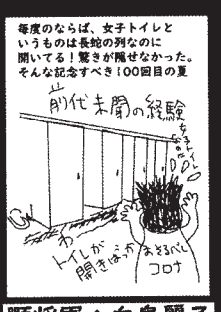 毎度のならば、女子トイレと
いうものは長蛇の列なのに
開いてる！驚きが隠せなかった。
そんな記念すべき100回目の夏
前代未聞の経験
女子トイレ
なのに
わー
トイレが
開きほうだい
おそるべし
コロナ